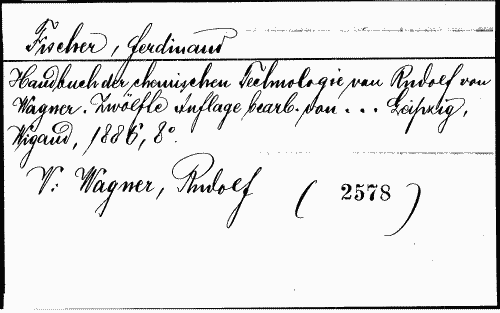 Fischer, Ferdinand
Handbuch der chemischen Technologie von Rudolf von
Wagner. Zwölfte Auflage bearb. von ... Leipzig,
Wigand, 1886, 8°.
V: Wagner, Rudolf ( 2578 )